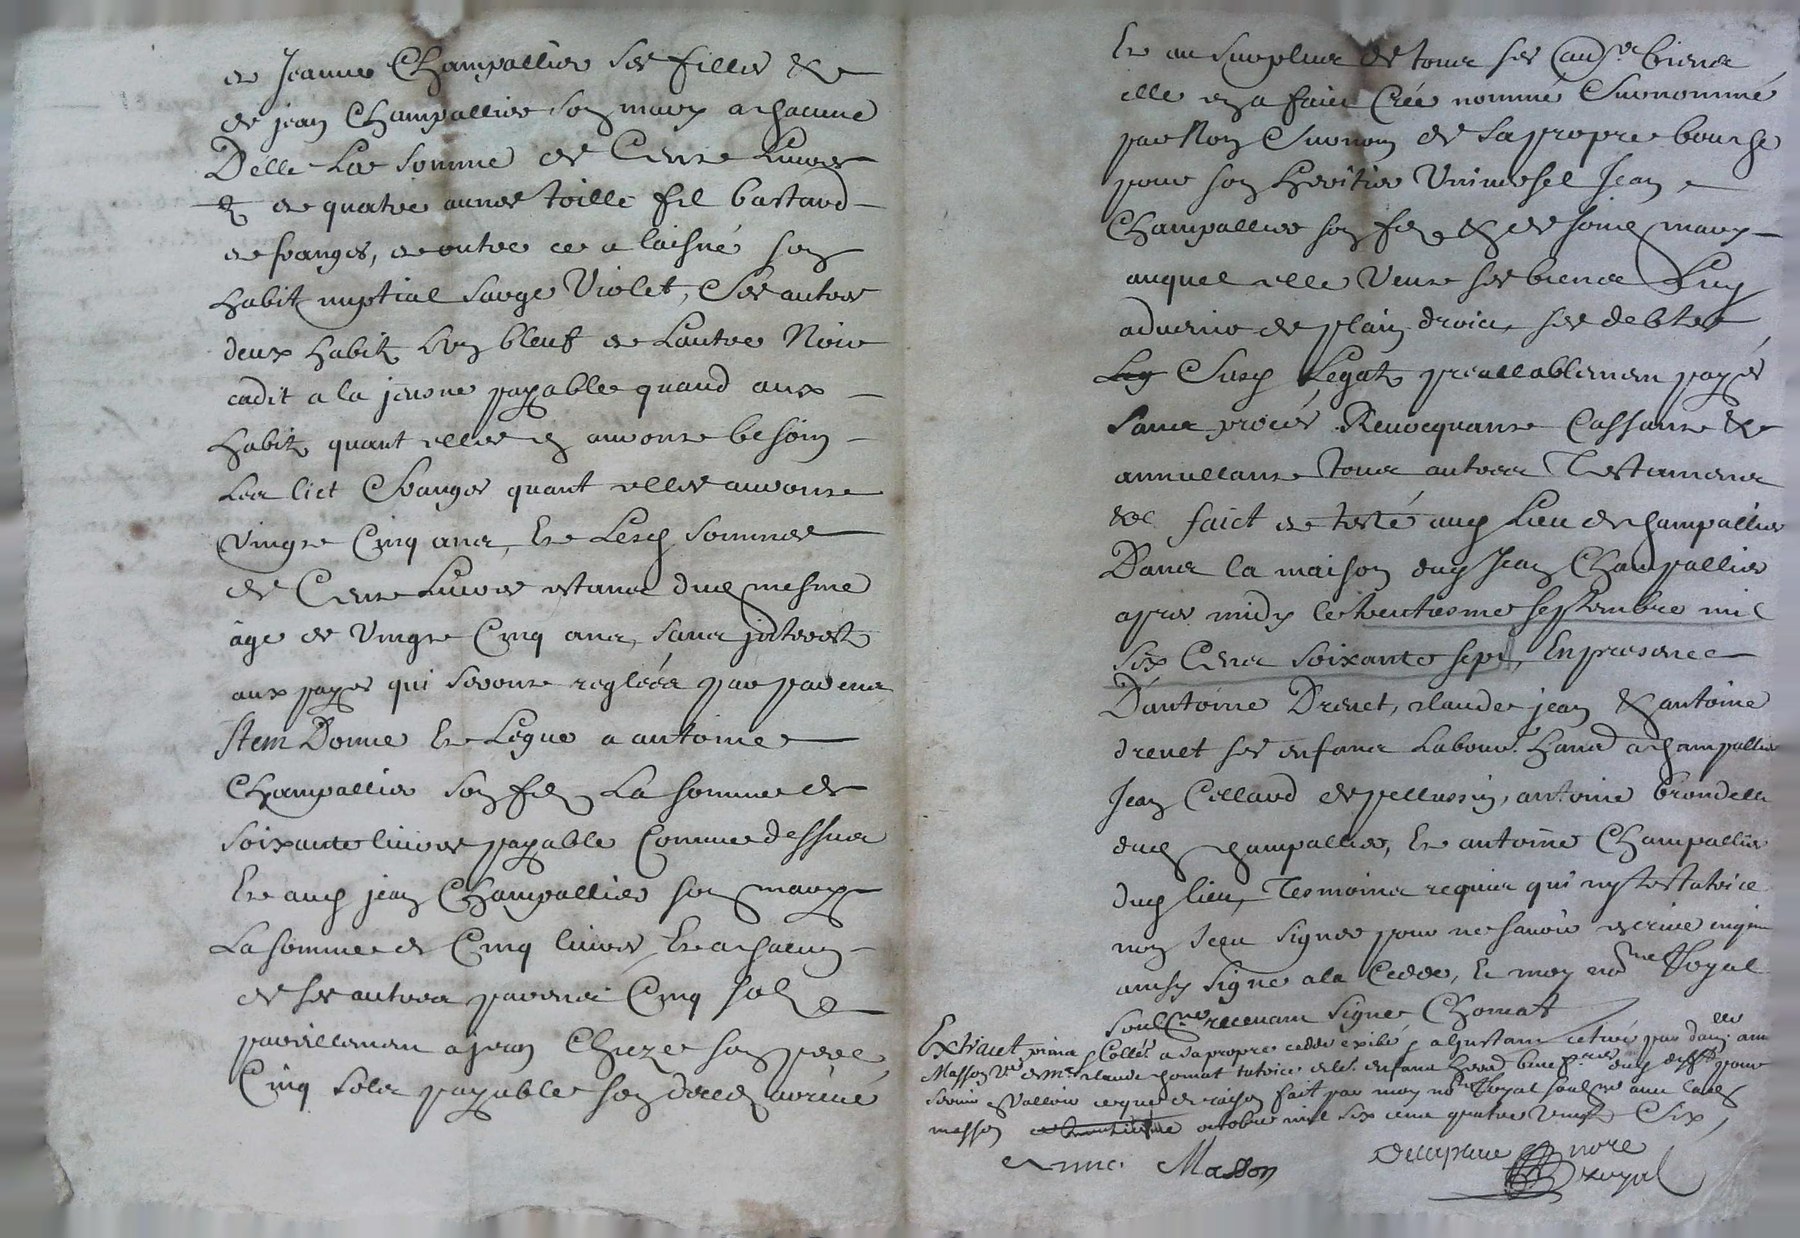 et Jeanne Champallier ses filles & et
de jean Champallier son mary a chacune
D'elle La somme de Cent Livres
et de quatre aunes toille fil bastard
et franges, et outre ce a laissé son
habit nuptial sarge Violet, Ses autres
deux habitz Lun bleuf et Lautre Noir
cadit a la jeusne payable quand aux
habitz quant elles en auront besoin
Les lict franges quant elles auront
Vingt Cinq ans, Et Lesd sommes
de Cent Livres estant dud mesme
âge de Vingt Cinq ans, sans jnterest
aux payes qui seront reglées par parens
Jtem Donne Et Legue a antoine
Champallier son fils La somme de
soixante livres payable Comme dessus
Et aud jean Champallier son mary
La somme de Cinq livres, Et a chacun
de ses autres parens Cinq solz
pareillement a jean Chieze son pere
Cinq solz payable son deced arrivé
Et au surplus de tous ses biens
elle en a faict Créé nommé Surnommé
par Nom Surnom de sa propre bouche
pour son heritier Universel Jean
Champallier son fils & de sond mary
auquel elle Veut ses biens Luy
advenir de plain droict, ses debtes
Leg Susd Legatz preallablement payés
sans procés Revocquant Cassant &
annullant tous autres Testamens
&c faict et testé aud Lieu de champallier
Dans la maison dud Jean Champallier
apres midy le trentiesme septembre mil
six Cens soixante sept, En presence
D'antoine Drevet, claude jean & antoine
drevet ses enfans Labour. hans a champallier
Jean Collard de pellussin, antoine brondelle
dud champallier, Et antoine Champallier
dud lieu, Tesmoins requis qui ny testatrice
non sceu signer pour ne savoir escrire enquis
ainsy signé a la Cedde, Et moy no.re Royal
soub.né recevant signé Chomat
Extraict prins Collé a sa propre cedde exibé a l'instant retiré par dam.lle anne
Masson V.e de M.re claude chomat tutrice de l. enfans pour
servir & Valloir ce que de raison fait par moy no.re Royal avec lad
masson octobre mil six cens quatre Vingt Six
Anne Masson
nore
royal